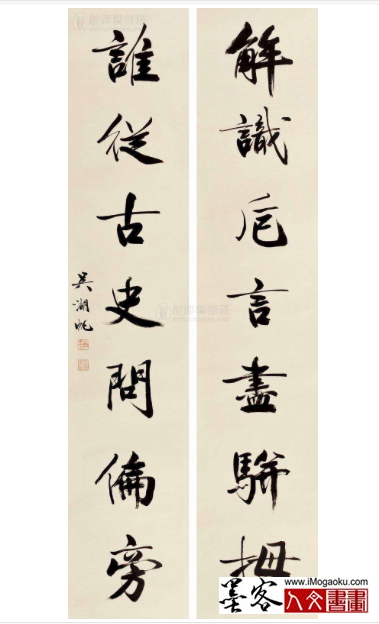 解識卮言盡駢拇
誰從古史問偏旁
吳湖帆
墨客
www.iMogaoku.com
人文書畫